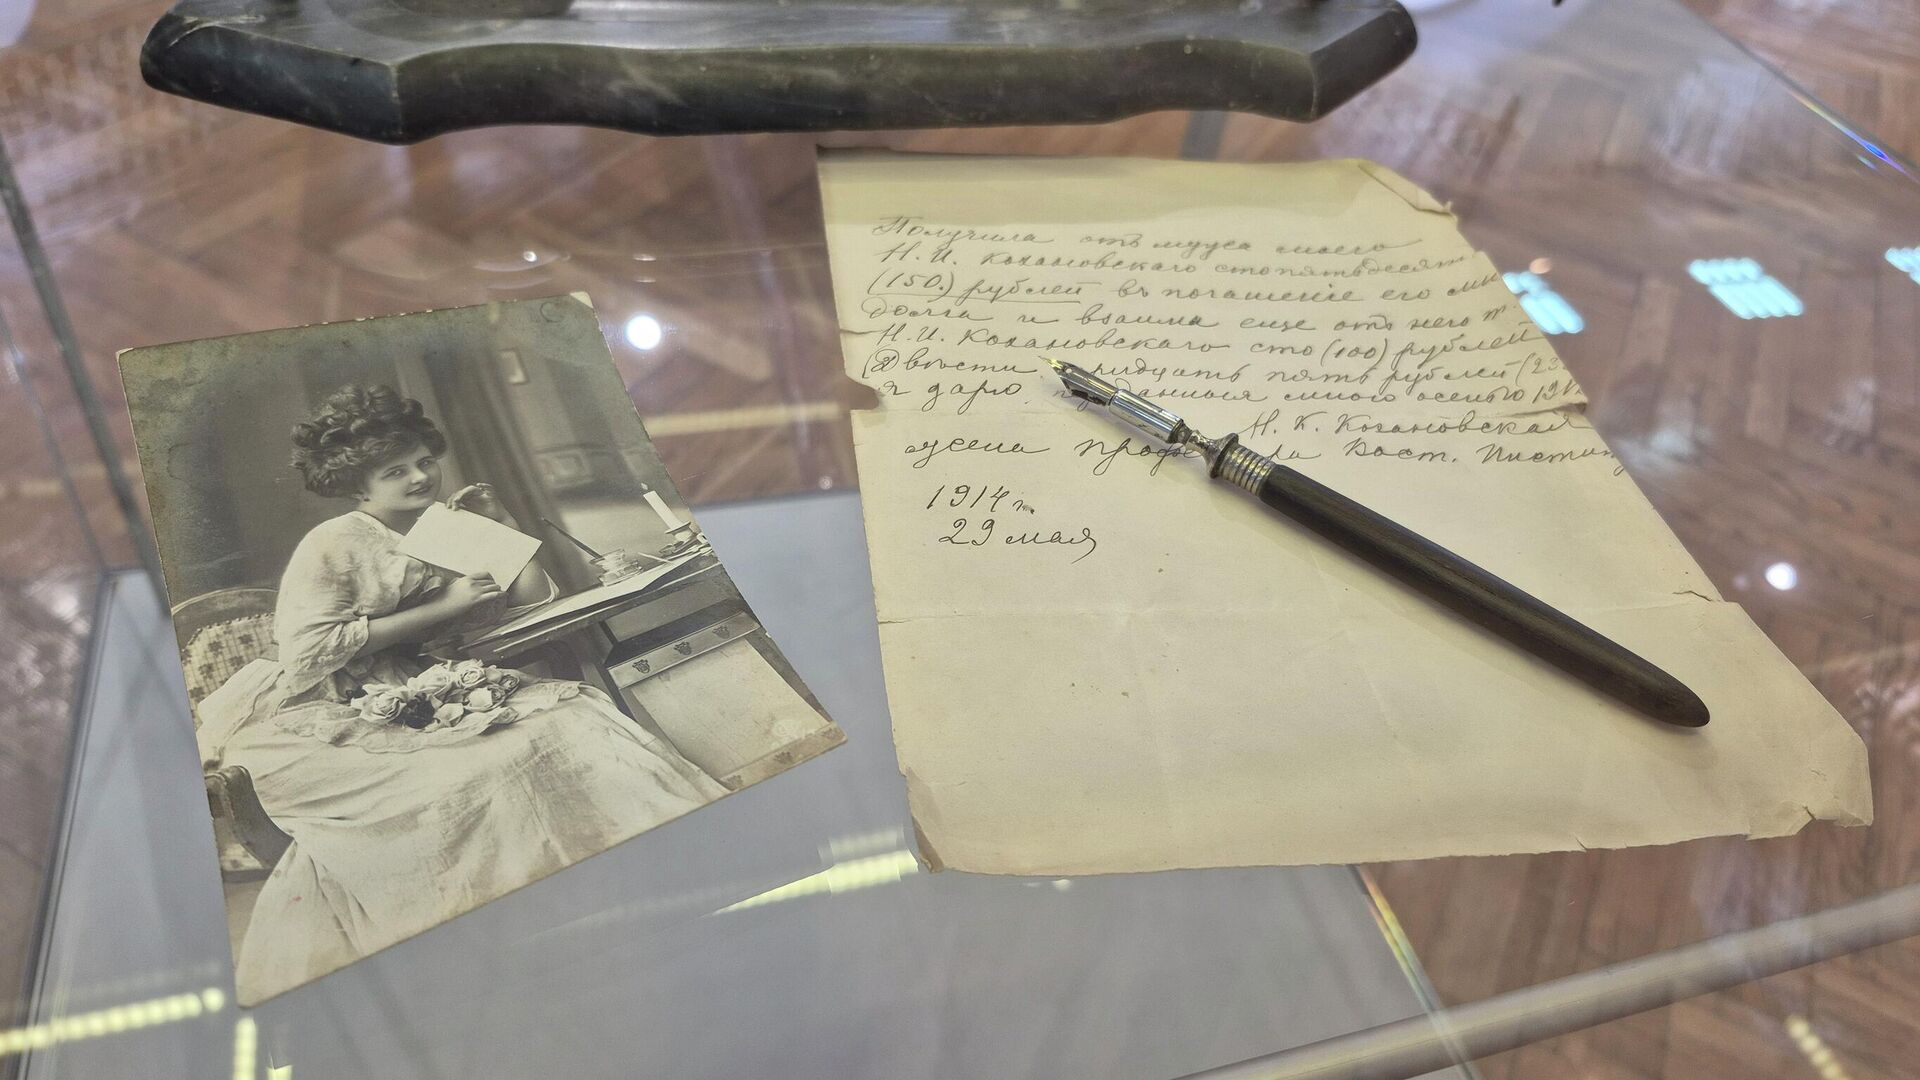 Получила отъ мужа моего
Н. И. Кохановскаго стопятьдесятъ
(150.) рублей въ погашеніе его мнѣ
долга и взаима еще отъ него
Н. И. Кохановскаго сто (100) рублей
Двѣсти тридцать пять рублей (23
я дарю. мною осенью 191
Н. К. Кохановская
жена Вост. Институ
1914 г.
29 мая